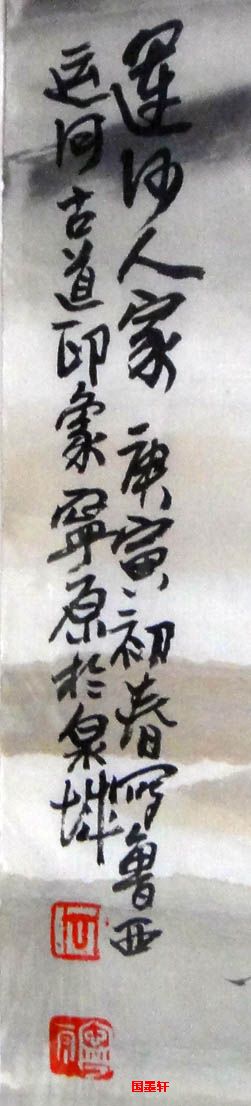 運河人家 庚寅初春寫魯西
运河古道印象寧原於泉城
国墨轩